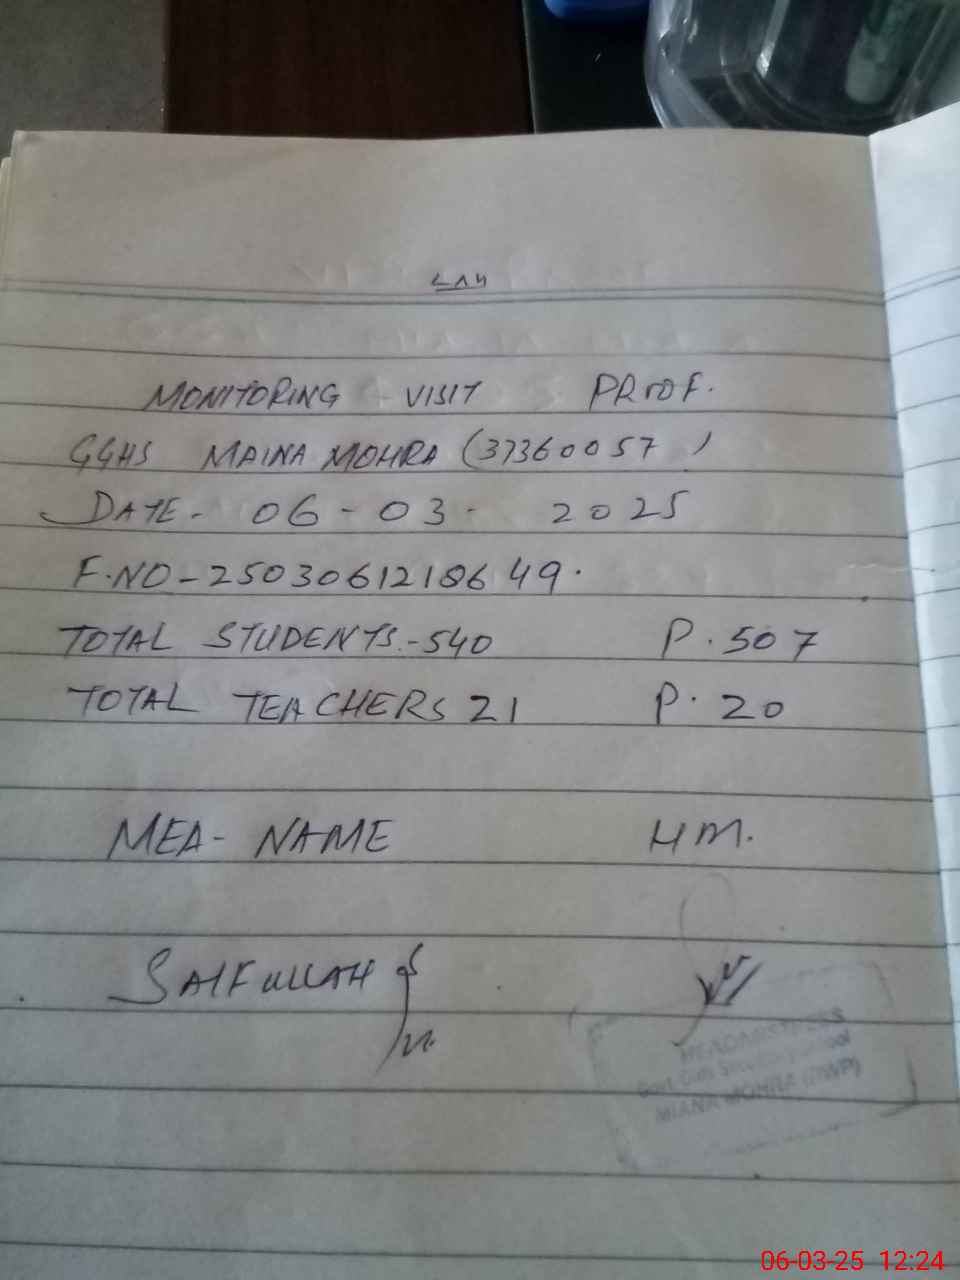 MONITORING VISIT PROOF.
GGHS MAINA MOHRA (37360057)
DATE- 06-03-2025
F.NO-2503061218649.
TOTAL STUDENTS.-540 P.507
TOTAL TEACHERS 21 P.20
MEA-NAME HM.
SAIFULLAH
HEADMISTRESS
Govt. Girls Secondary School
MIANA MOHRA (RWP)
06-03-25 12:24